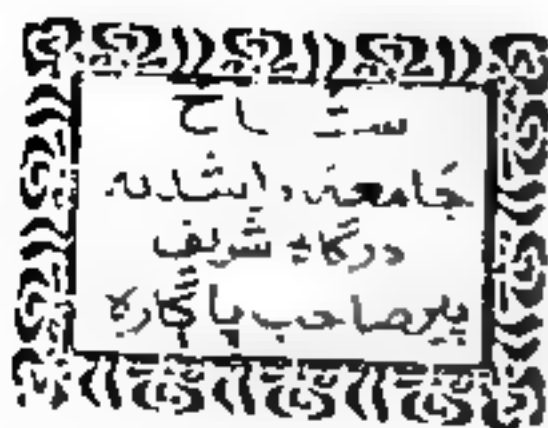 جامعه راشديه
درگاه شريف
پير صاحب پاڳاره